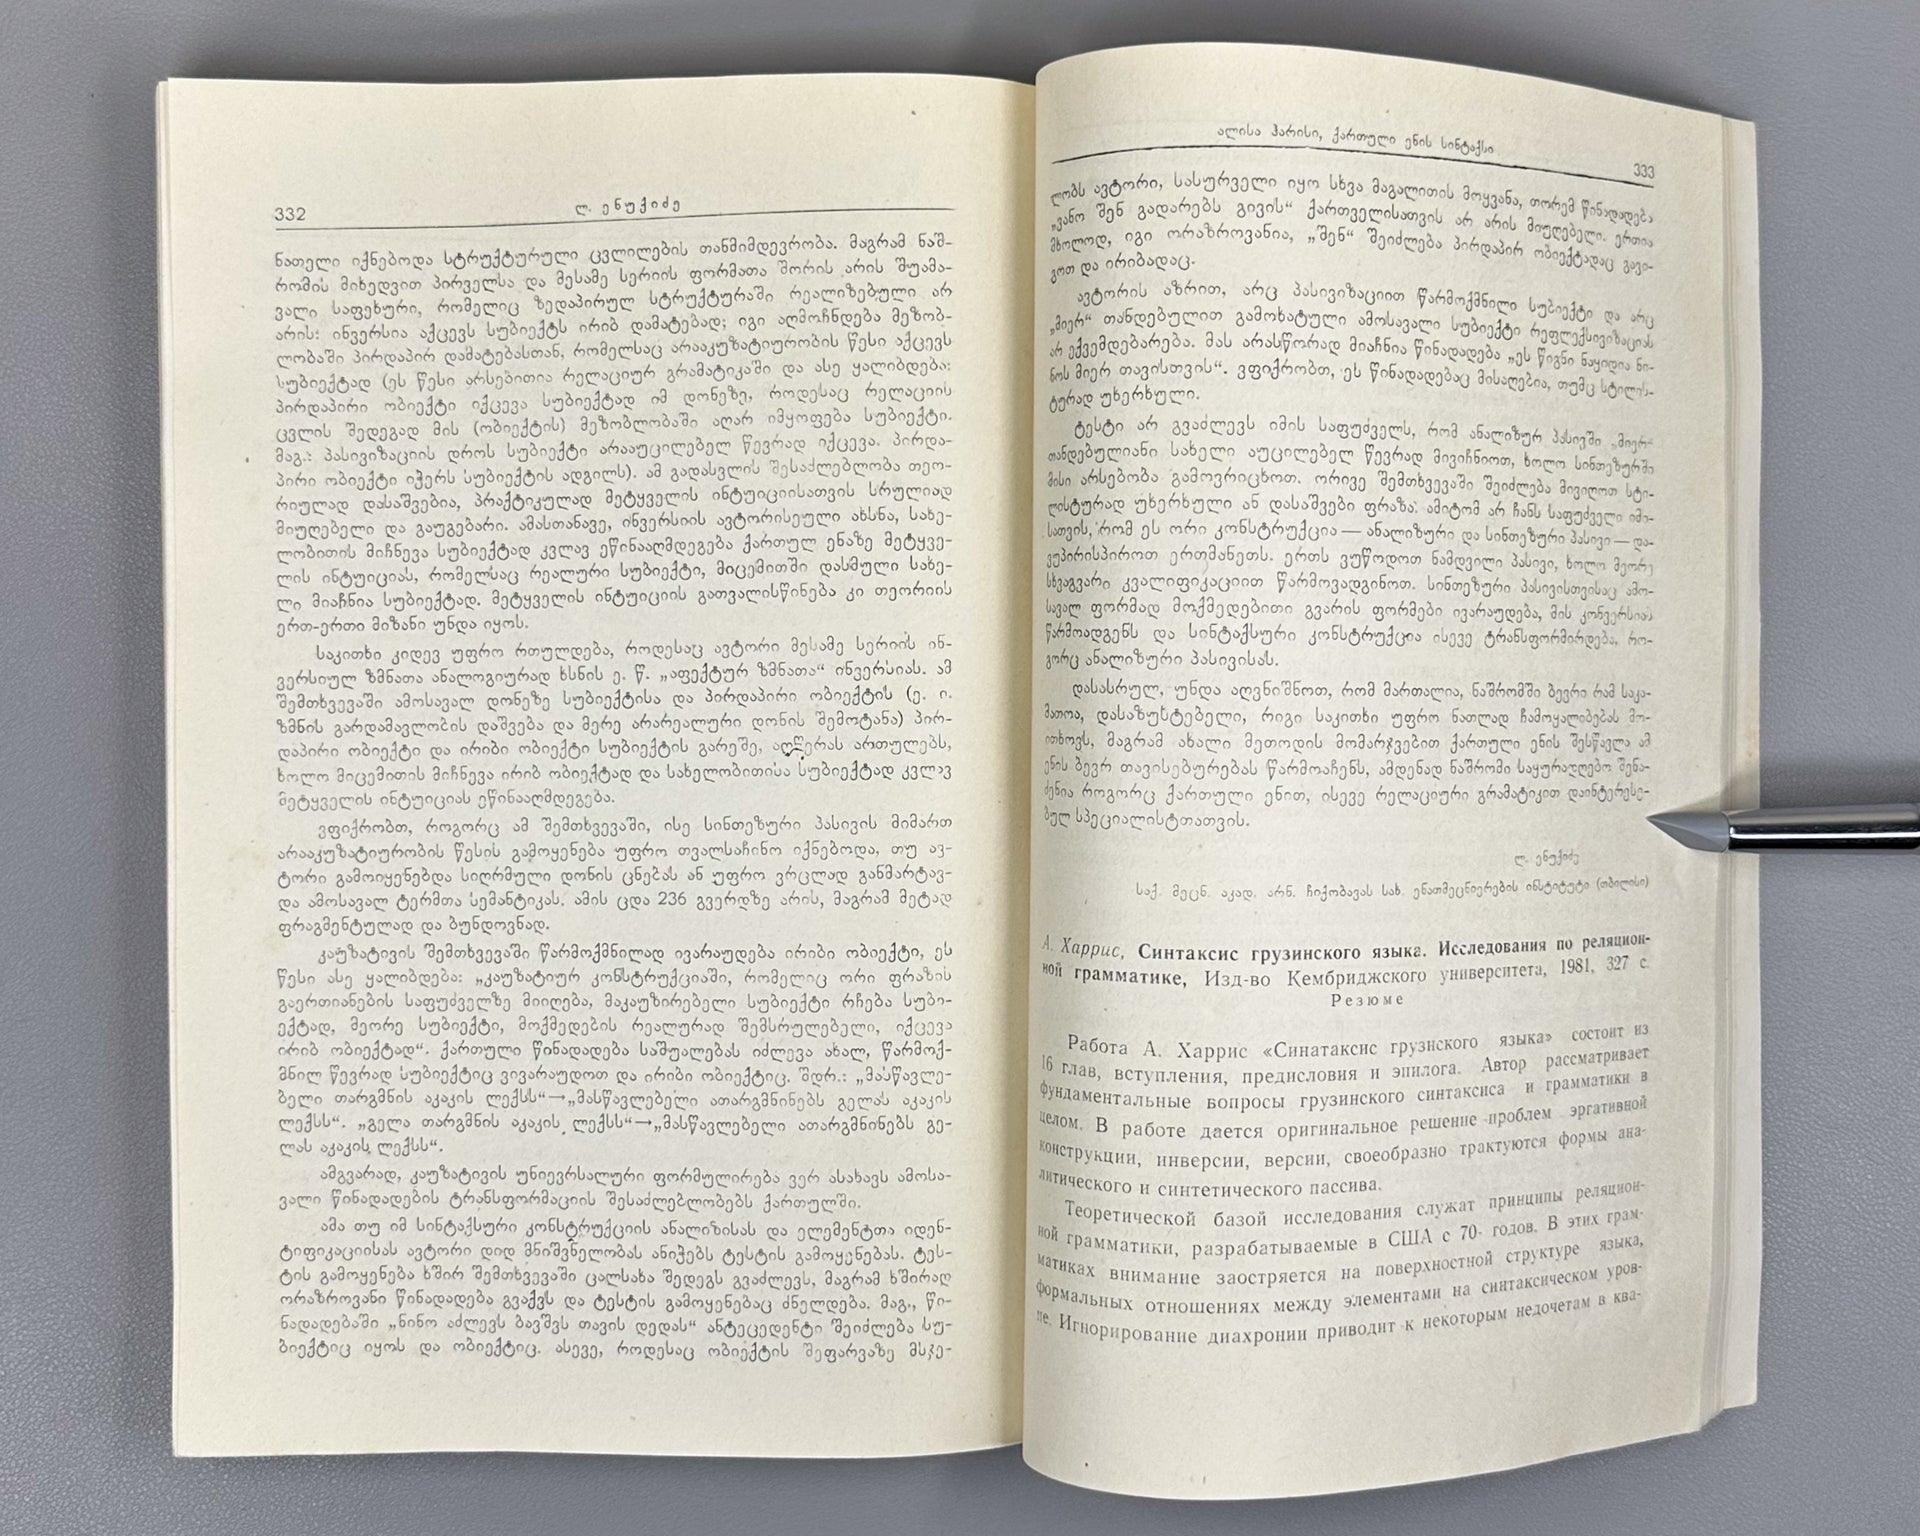 332
ლ. ენუქიძე
ნათელი იქნებოდა სტრუქტურული ცვლილების თანმიმდევრობა. მაგრამ ნაშ-
რომის მიხედვით პირველსა და მესამე სერიის ფორმათა შორის არის შუამა-
ვალი საფეხური, რომელიც ზედაპირულ სტრუქტურაში რეალიზებული არ
არის: ინვერსია აქცევს სუბიექტს ირიბ დამატებად; იგი აღმოჩნდება მეზობ-
ლობაში პირდაპირ დამატებასთან, რომელსაც არააკუზატიურობის წესი აქცევს
სუბიექტად (ეს წესი არსებითია რელაციურ გრამატიკაში და ასე ყალიბდება:
პირდაპირი ობიექტი იქცევა სუბიექტად იმ დონეზე, როდესაც რელაციის
ცვლის შედეგად მის (ობიექტის) მეზობლობაში აღარ იმყოფება სუბიექტი.
მაგ.: პასივიზაციის დროს სუბიექტი არააუცილებელ წევრად იქცევა. პირდა-
პირი ობიექტი იჭერს სუბიექტის ადგილს). ამ გადასვლის შესაძლებლობა თეო-
რიულად დასაშვებია, პრაქტიკულად მეტყველის ინტუიციისათვის სრულიად
მიუღებელი და გაუგებარი. ამასთანავე, ინვერსიის ავტორისეული ახსნა, სახე-
ლობითის მიჩნევა სუბიექტად კვლავ ეწინააღმდეგება ქართულ ენაზე მეტყვე-
ლის ინტუიციას, რომელსაც რეალური სუბიექტი, მიცემითში დასმული სახე-
ლი მიაჩნია სუბიექტად. მეტყველის ინტუიციის გათვალისწინება კი თეორიის
ერთ-ერთი მიზანი უნდა იყოს.
საკითხი კიდევ უფრო რთულდება, როდესაც ავტორი მესამე სერიის ინ-
ვერსიულ ზმნათა ანალოგიურად ხსნის ე. წ. „აფექტურ ზმნათა“ ინვერსიას. ამ
შემთხვევაში ამოსავალ დონეზე სუბიექტისა და პირდაპირი ობიექტის (ე. ი.
ზმნის გარდამავლობის დაშვება და მერე არარეალური დონის შემოტანა) პირ-
დაპირი ობიექტი და ირიბი ობიექტი სუბიექტის გარეშე, აღწერას ართულებს,
ხოლო მიცემითის მიჩნევა ირიბ ობიექტად და სახელობითისა სუბიექტად კვლავ
მეტყველის ინტუიციას ეწინააღმდეგება.
ვფიქრობთ, როგორც ამ შემთხვევაში, ისე სინთეზური პასივის მიმართ
არააკუზატიურობის წესის გამოყენება უფრო თვალსაჩინო იქნებოდა, თუ ავ-
ტორი გამოიყენებდა სიღრმული დონის ცნებას ან უფრო ვრცლად განმარტავ-
და ამოსავალ ტერმთა სემანტიკას. ამის ცდა 236 გვერდზე არის, მაგრამ მეტად
ფრაგმენტულად და ბუნდოვნად.
კაუზატივის შემთხვევაში წარმოქმნილად ივარაუდება ირიბი ობიექტი, ეს
წესი ასე ყალიბდება: „კაუზატიურ კონსტრუქციაში, რომელიც ორი ფრაზის
გაერთიანების საფუძველზე მიიღება, მაკაუზირებელი სუბიექტი რჩება სუბი-
ექტად, მეორე სუბიექტი, მოქმედების რეალურად შემსრულებელი, იქცევა
ირიბ ობიექტად“. ქართული წინადადება საშუალებას იძლევა ახალ, წარმოქ-
მნილ წევრად სუბიექტიც ვივარაუდოთ და ირიბი ობიექტიც. შდრ.: „მასწავლე-
ბელი თარგმნის აკაკის ლექსს“→„მასწავლებელი ათარგმნინებს გელას აკაკის
ლექსს“. „გელა თარგმნის აკაკის ლექსს“→„მასწავლებელი ათარგმნინებს გე-
ლას აკაკის ლექსს“.
ამგვარად, კაუზატივის უნიევრსალური ფორმულირება ვერ ასახავს ამოსა-
ვალი წინადადების ტრანსფორმაციის შესაძლებლობებს ქართულში.
ამა თუ იმ სინტაქსური კონსტრუქციის ანალიზისას და ელემენტთა იდენ-
ტიფიკაციისას ავტორი დიდ მნიშვნელობას ანიჭებს ტესტის გამოყენებას. ტეს-
ტის გამოყენება ხშირ შემთხვევაში ცალსახა შედეგს გვაძლევს, მაგრამ ხშირად
ორაზროვანი წინადადება გვაქვს და ტესტის გამოყენებაც ძნელდება. მაგ., წი-
ნადადებაში „ნინო აძლევს ბავშვს თავის დედას“ ანტეცედენტი შეიძლება სუ-
ბიექტიც იყოს და ობიექტიც. ასევე, როდესაც ობიექტის შეფარვაზე მსჯე-
ალისა ჰარისი, ქართული ენის სინტაქსი
333
ლობს ავტორი, სასურველი იყო სხვა მაგალითის მოყვანა, თორემ წინადადება
„ვანო შენ გადარებს გივის“ ქართველისათვის არ არის მიუღებელი. ერთია
მხოლოდ, იგი ორაზროვანია, „შენ“ შეიძლება პირდაპირ ობიექტადაც გავი-
გოთ და ირიბადაც.
ავტორის აზრით, არც პასივიზაციით წარმოქმნილი სუბიექტი და არც
„მიერ“ თანდებულით გამოხატული ამოსავალი სუბიექტი რეფლექსივიზაციას
არ ექვემდებარება. მას არასწორად მიაჩნია წინადადება „ეს წიგნი ნაყიდია ნი-
ნოს მიერ თავისთვის“. ვფიქრობთ, ეს წინადადებაც მისაღებია, თუმც სტილის-
ტურად უხერხული.
ტესტი არ გვაძლევს იმის საფუძველს, რომ ანალიზურ პასივში „მიერ“
თანდებულიანი სახელი აუცილებელ წევრად მივიჩნიოთ, ხოლო სინთეზურში
მისი არსებობა გამოვრიცხოთ. ორივე შემთხვევაში შეიძლება მივიღოთ სტი-
ლისტურად უხერხული ან დასაშვები ფრაზა. ამიტომ არ ჩანს საფუძველი იმი-
სათვის, რომ ეს ორი კონსტრუქცია — ანალიზური და სინთეზური პასივი — და-
ვუპირისპიროთ ერთმანეთს. ერთს ვუწოდოთ ნამდვილი პასივი, ხოლო მეორე
სხვაგვარი კვალიფიკაციით წარმოვადგინოთ. სინთეზური პასივისთვისაც ამო-
სავალ ფორმად მოქმედებითი გვარის ფორმები ივარაუდება, მის კონვერსიას
წარმოადგენს და სინტაქსური კონსტრუქცია ისევე ტრანსფორმირდება, რო-
გორც ანალიზური პასივისას.
დასასრულ, უნდა აღვნიშნოთ, რომ მართალია, ნაშრომში ბევრი რამ საკა-
მათოა, დასაზუსტებელი, რიგი საკითხი უფრო ნათლად ჩამოყალიბებას მო-
ითხოვს, მაგრამ ახალი მეთოდის მომარჯვებით ქართული ენის შესწავლა ამ
ენის ბევრ თავისებურებას წარმოაჩენს, ამდენად ნაშრომი საყურადღებო შენა-
ძენია როგორც ქართული ენით, ისევე რელაციური გრამატიკით დაინტერესე-
ბულ სპეციალისტთათვის.
ლ. ენუქიძე
საქ. მეცნ. აკად. არნ. ჩიქობავას სახ. ენათმეცნიერების ინსტიტუტი (თბილისი)
А. Харрис, Синтаксис грузинского языка. Исследования по реляцион-
ной грамматике, Изд-во Кембриджского университета, 1981, 327 с.
Резюме
Работа А. Харрис «Синатаксис грузнского языка» состоит из
16 глав, вступления, предисловия и эпилога. Автор рассматривает
фундаментальные вопросы грузинского синтаксиса и грамматики в
целом. В работе дается оригинальное решение проблем эргативной
конструкции, инверсии, версии, своеобразно трактуются формы ана-
литического и синтетического пассива.
Теоретической базой исследования служат принципы реляцион-
ной грамматики, разрабатываемые в США с 70- годов. В этих грам-
матиках внимание заостряется на поверхностной структуре языка,
формальных отношениях между элементами на синтаксическом уров-
не. Игнорирование диахронии приводит к некоторым недочетам в ква-